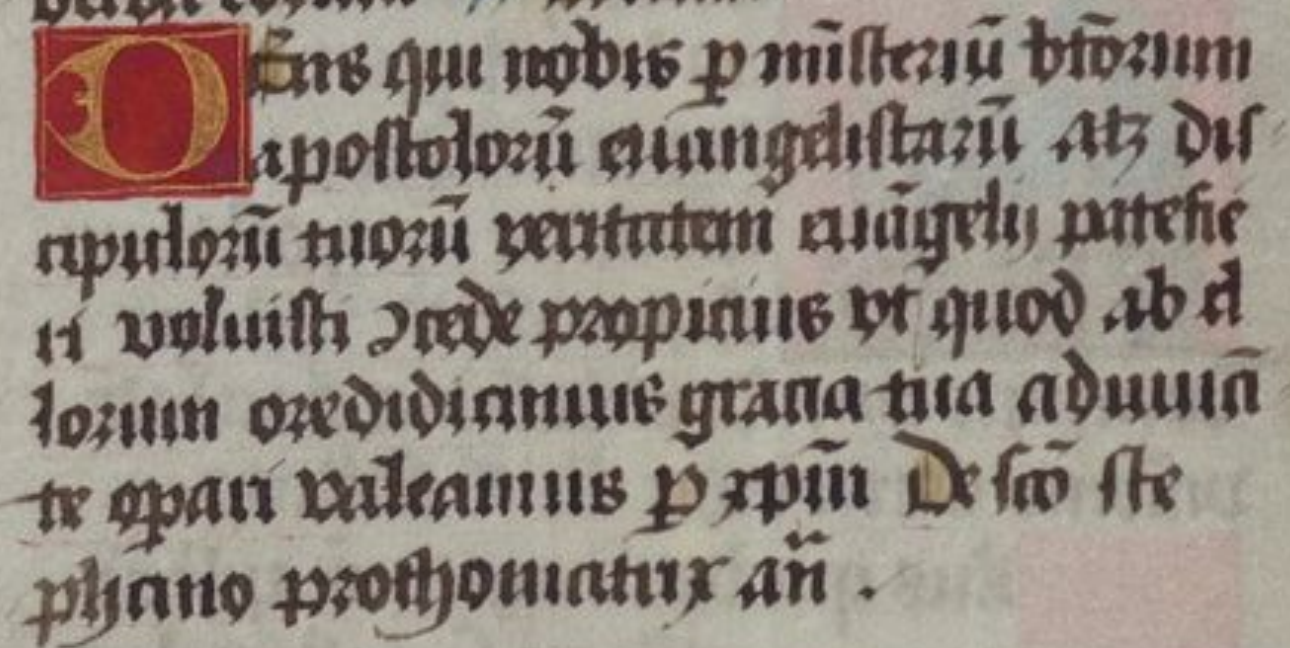 Oms̄ qui nobis ꝑ mīsteriū btōrum
apostolorū euangelistarū atꝫ dis
cipulorū tuorū veritatem euāgelij patefie
ri voluisti ↄcede propicius vt quod ab il
lorum oredidicimus gracia tua adiuuā
te oꝑari valeamus ꝑ xpm̄ De sc̄o ste
phano prothomartirꝭ an̄ .